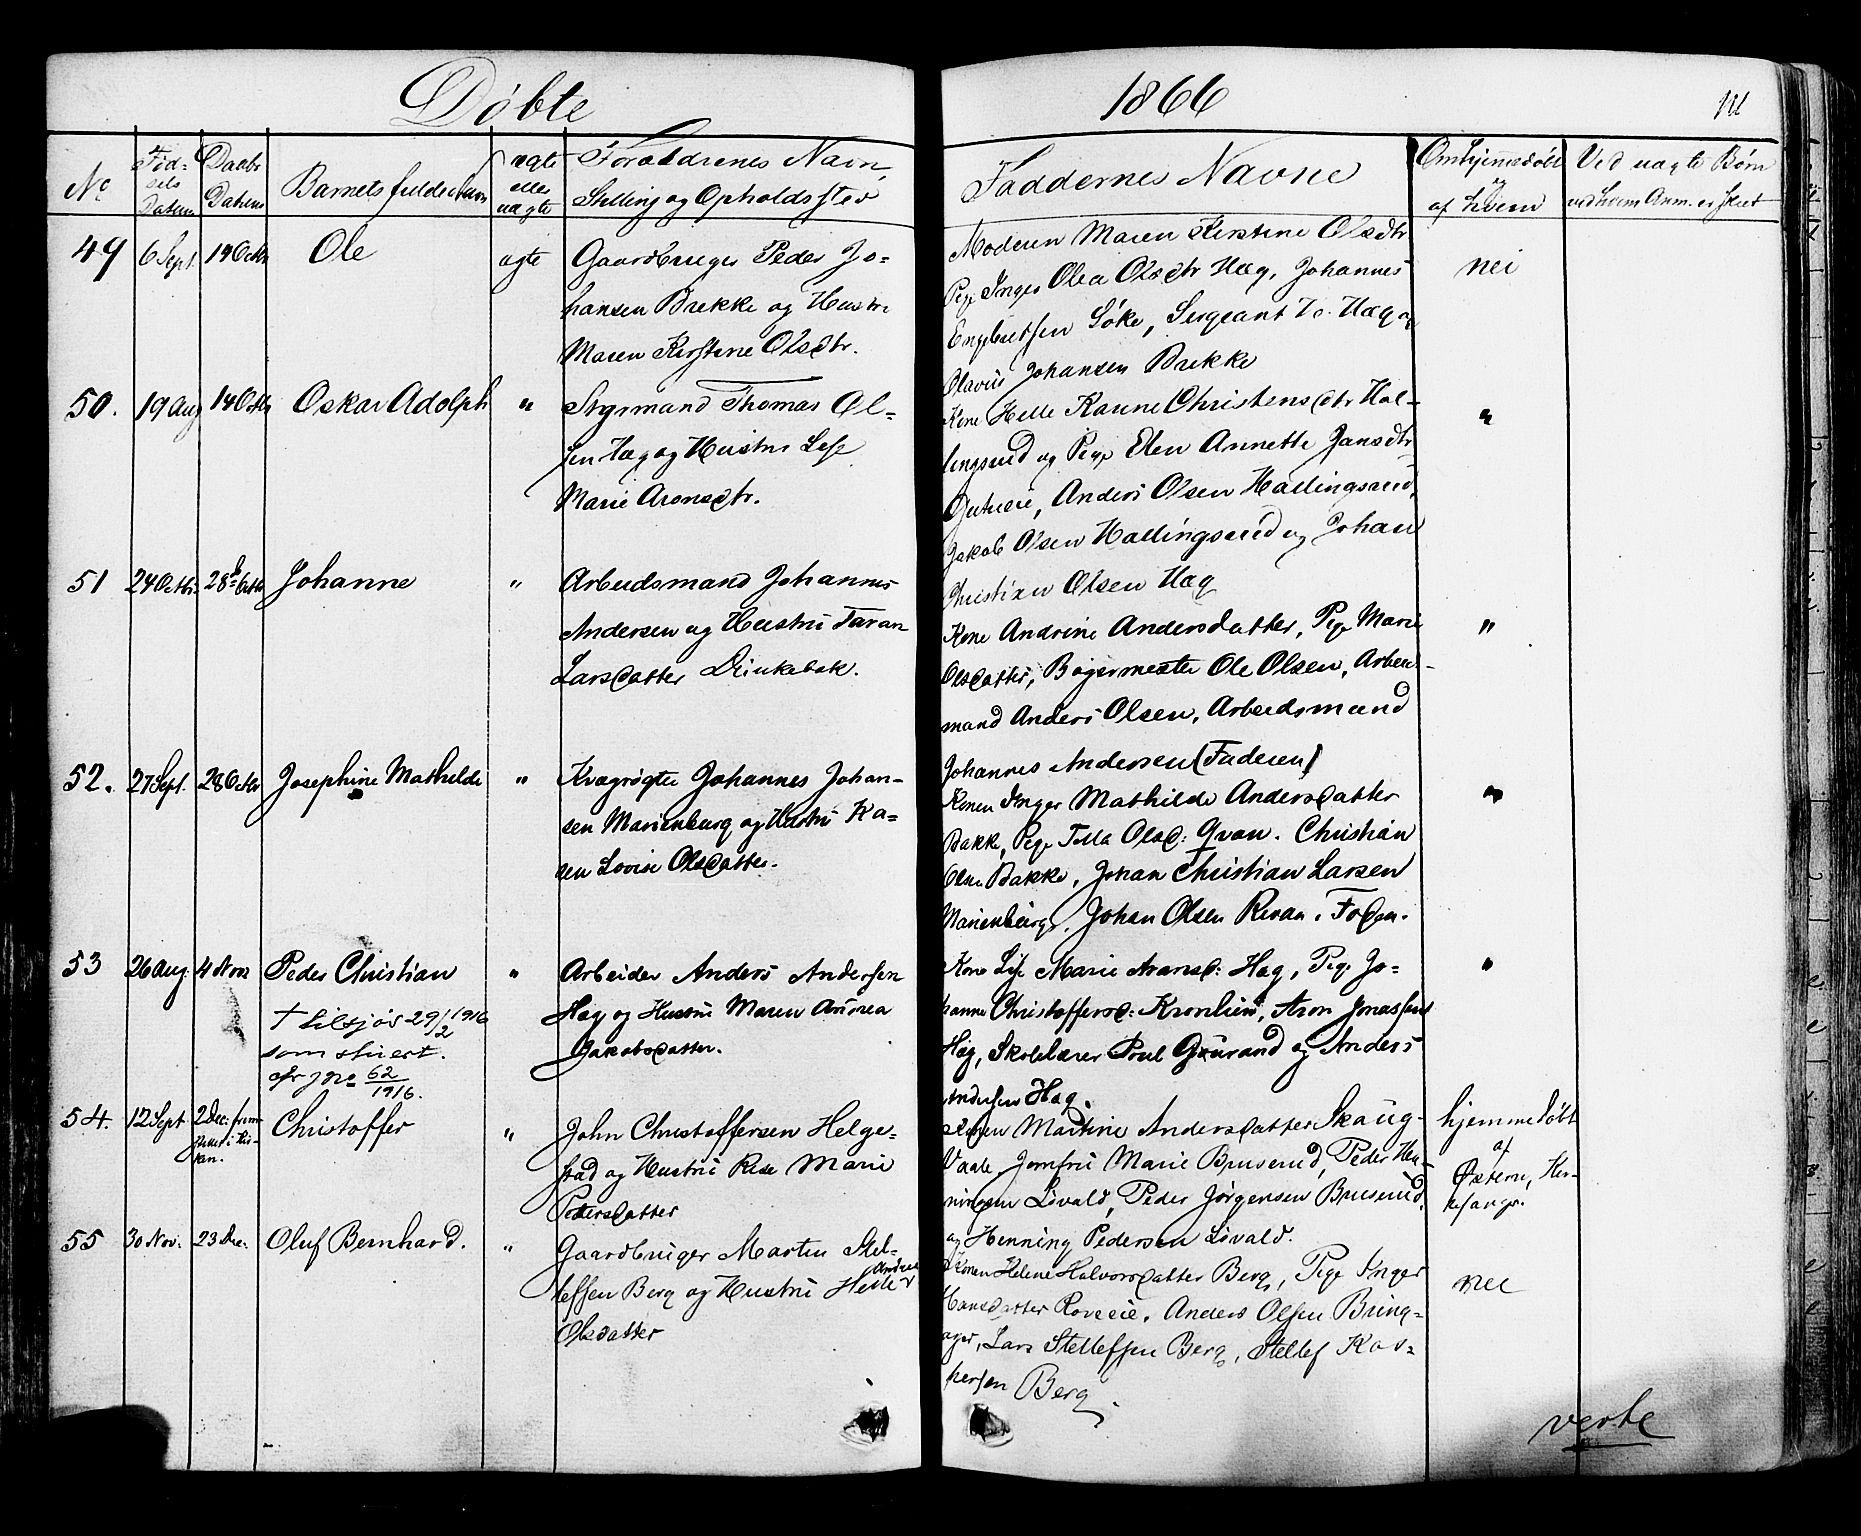 Døbte
1866
Nº
Fød-
sels
Datum
Daabs
Datum
Barnets fulde Navn
ægte
eller
uægte
Forældrenes Navn,
Stilling og Opholdssted
Faddernes Navne
Om hjemmedøbt
og
af hvem
Ved uægte Børn
ved hvem Anm. er skeet
49
6 Sept.
14 Octbr
Ole
ægte
Gaardbruger Peder Jo-
hansen Brekke og Hustru
Maren Kirstine Olsdtr.
Moderen Maren Kirstine Olsdtr
Pige Inger Olea Olsdtr Hæg, Johannes
Engebretsen Løke, Sergeant Hæg og
Olavus Johansen Brekke
nei
50.
19 Aug
14 Octbr
Oskar Adolph
"
Styrmand Thomas Ol-
sen Hæg og Hustru Lise
Marie Aronsdtr.
Kone Helle Karine Christensdtr Hal-
lingsrud og Pige Elen Annette Jansdtr
Anders Olsen Hallingsrud,
Jakob Olsen Hallingsrud og Johan
Christian Olsen Hæg
"
51
24 Octbr.
28 Octbr
Johanne
"
Arbeidsmand Johannes
Andersen og Hustru Taran
Larsdatter
Kone Andrine Andersdatter, Pige Marie
Olsdatter, Bøgermester Ole Olsen, Arbeids-
mand Anders Olsen, Arbeidsmand
Johannes Andersen (Faderen)
"
52.
27 Sept.
28 Octbr
Josephine Mathilde
"
Kvægrøgter Johannes Johan-
sen Marienborg og Hustru Ka-
ren Lovise Olsdatter.
Konen Inger Mathilde Andersdatter
Bakke, Pige Olsd: Qvan. Christian
Olsen Bakke, Johan Christian Larsen
Marienborg, Johan Olsen
"
53
26 Aug.
4 Novr
Peder Christian
† Lilsjø 29/2 1916
som
cfr jno 62/1916.
"
Arbeider Anders Andersen
Hæg og Hustru Maren Andrea
Jakobsdatter.
Kone Lise Marie Aronsd: Hæg, Pige Jo-
hanne Christoffersd: Kronlien, Aron Jonassen
Hæg, Skolelærer Poul og Anders
Andersen Hæg.
"
54.
12 Sept
2 Dec. frem-
stillet i Kir-
ken.
Christoffer
"
John Christoffersen Helge-
stad og Hustru Marie
Pedersdatter
Konen Martine Andersdatter Skaug-
Vaale, Jomfru Marie Bruserud, Peder Hen-
ningsen Løvald, Peder Jørgensen Bruserud,
og Henning Pedersen Løvald.
hjemmedøbt
af
Kirkesanger.
55
30 Nov.
23 Dec.
Oluf Bernhard.
"
Gaardbruger Martin Stel-
lefsen Berg og Hustru Helle Andrea
Olsdatter
Konen Helene Halvorsdatter Berg, Pige Inger
Hansdatter Roveeie, Anders Olsen Bring-
ager, Lars Stellefsen Berg, Stellef Kas-
persen Berg.
nei
verte